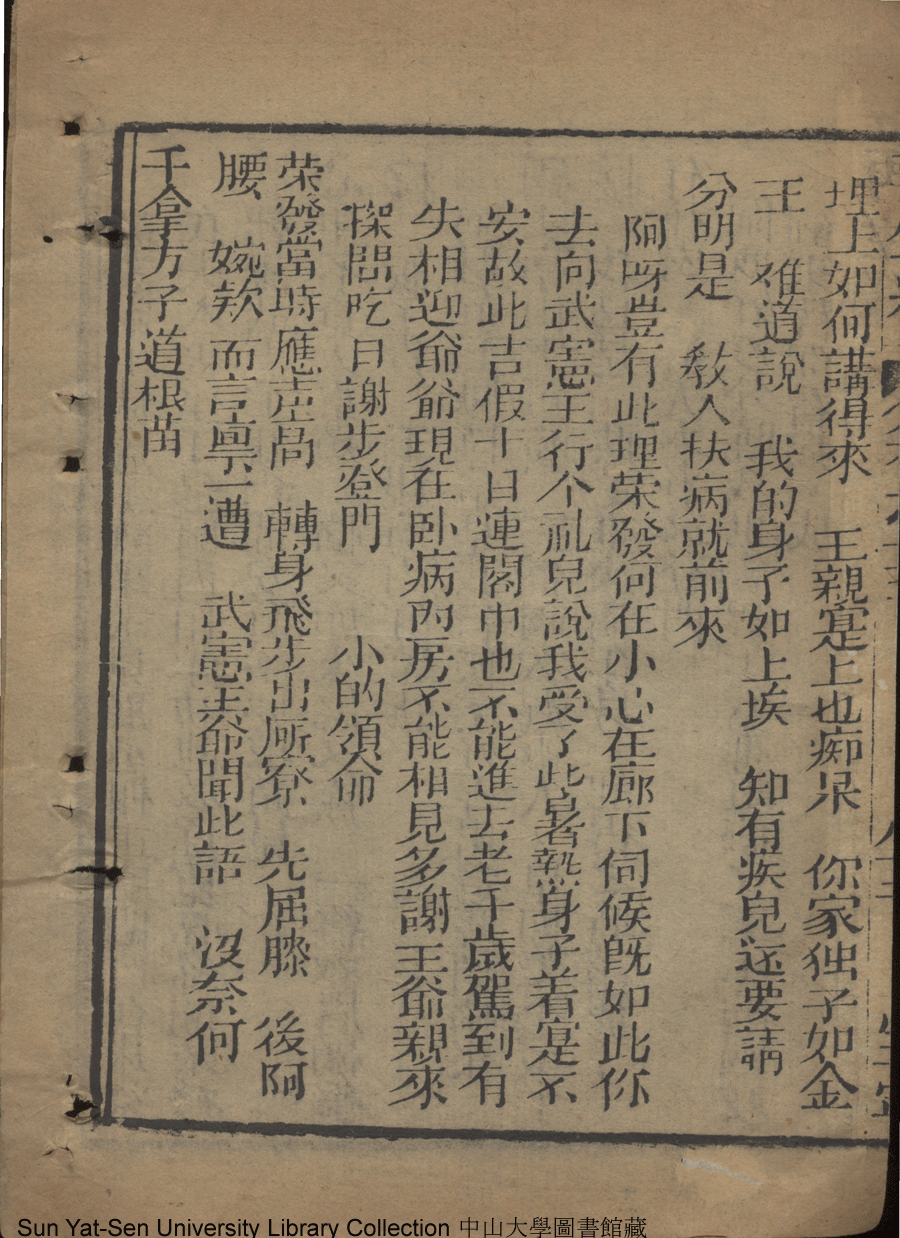 埋上如何講得來　王親寔上也痴呆　你家独子如金
王　难道說　我的身子如上埃　知有疾兒还要請
分明是　教人扶病就前來
阿呀豈有此理荣發何在小心在廊下伺候既如此你
去向武憲王行个礼兒說我受了此暑热身子着寔不
安故此吉假十日連閣中也不能進去老千歲駕到有
失相迎爺爺現在卧病內房不能相見多謝王爺親來
探問吃日謝步登門　小的領命
荣發當時應声高　轉身飛步出厮寮　先屈膝　後阿
腰　婉欸而言禀一遭　武憲王爺聞此語　没奈何
千拿方子道根苗
Sun Yat-Sen University Library Collection 中山大學圖書館藏